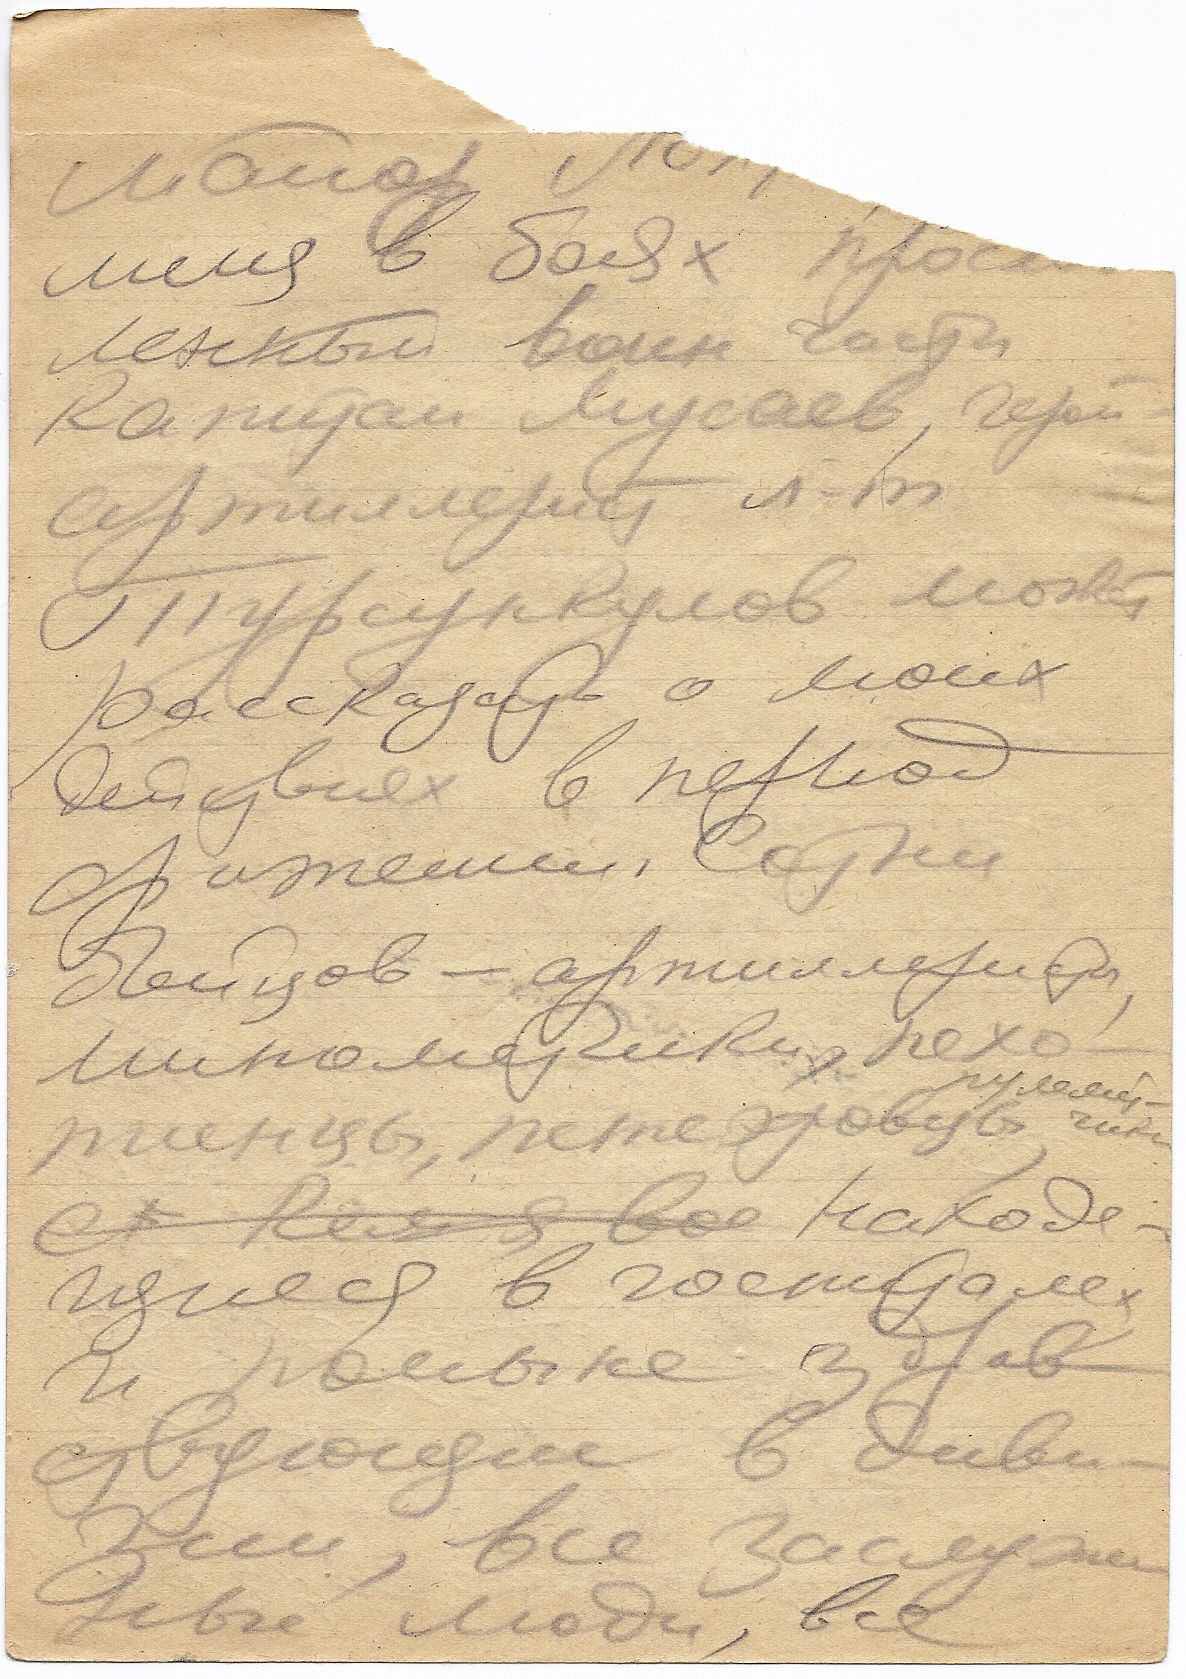 майор
меня в боях просла
ленный воин части
капитан Мусаев, герой-
артиллерист л-т
Турсункулов может
рассказать о моих
действиях в период
сражений, Сотни
бойцов - артиллеристы,
минометчики, пехо-
пулемет-
тинцы, петеэровцы, чики
находя-
щиеся в госпиталях
и поныне здрав
ствующие в диви-
зии, все заслужен
ные люди, все